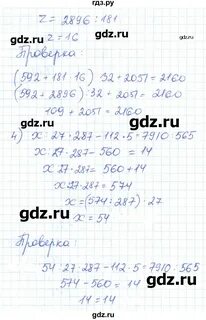 z = 2896 : 181
z = 16
Проверка:
(592 + 181 · 16) : 32 + 2051 = 2160
(592 + 2896) : 32 + 2051 = 2160
109 + 2051 = 2160
4) x : 27 · 287 - 112 · 5 = 7910 : 565
x : 27 · 287 - 560 = 14
x : 27 · 287 = 560 + 14
x : 27 · 287 = 574
x = (574 : 287) · 27
x = 54
Проверка:
54 : 27 · 287 - 112 · 5 = 7910 : 565
574 - 560 = 14
14 = 14
gdz.ru
gdz.ru
gdz.ru
gdz.ru
gdz.ru
gdz.ru
gdz.ru
gdz.ru